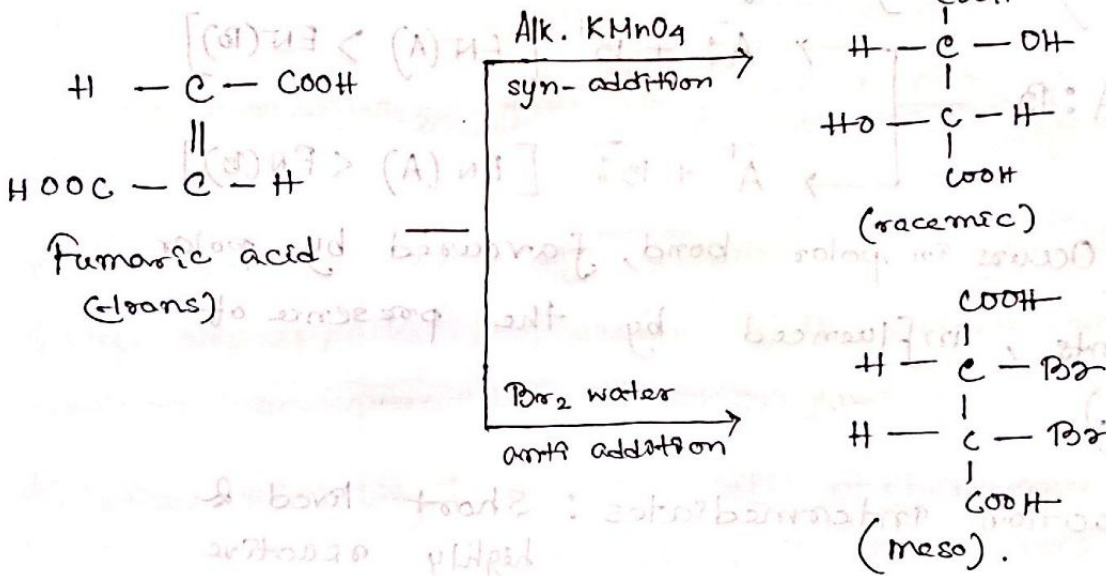 H — C — COOH
||
HOOC — C — H
Fumaric acid
(trans)
Alk. KMnO4
syn-addition
COOH
H — C — OH
HO — C — H
COOH
(racemic)
Br2 water
anti addition
COOH
H — C — Br
H — C — Br
COOH
(meso).